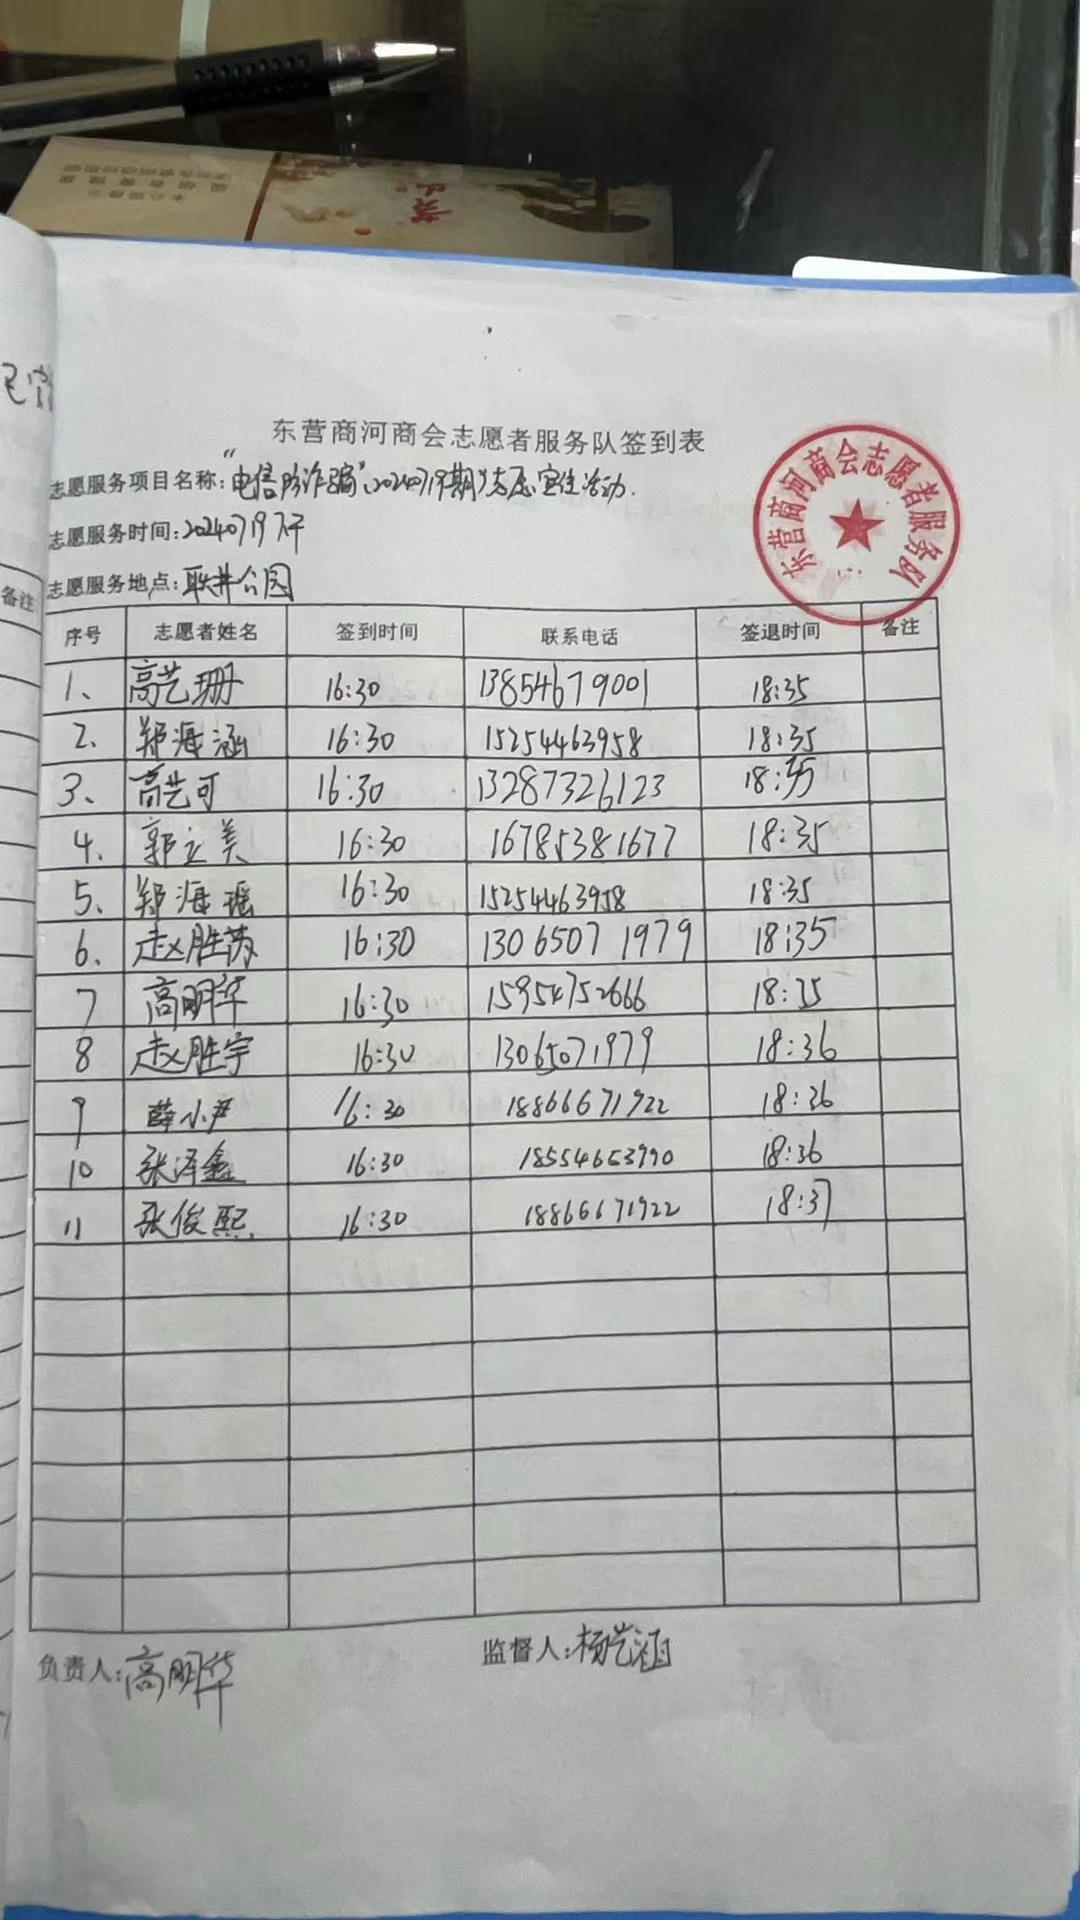 东营商河商会志愿者服务队签到表
志愿服务项目名称:"电信防诈骗"(20240719期)志愿宣传活动.
志愿服务时间:20240719下午
志愿服务地点:耿井公园
东营商河商会志愿者服务队
备注
序号 志愿者姓名 签到时间 联系电话 签退时间 备注
1、 高艺珊 16:30 13854679001 18:35
2、 郑海涵 16:30 15254463958 18:35
3、 高艺可 16:30 13287326123 18:35
4、 郭立美 16:30 16785381677 18:35
5、 郑海瑶 16:30 15254463958 18:35
6、 赵胜 16:30 13065071979 18:35
7 高明华 16:30 15954752666 18:35
8 赵胜宇 16:30 13065071979 18:36
9 薛小尹 16:30 18866671922 18:36
10 张泽鑫 16:30 18554653990 18:36
11 张俊熙 16:30 18866671922 18:37
负责人:高明华 监督人:杨艺涵